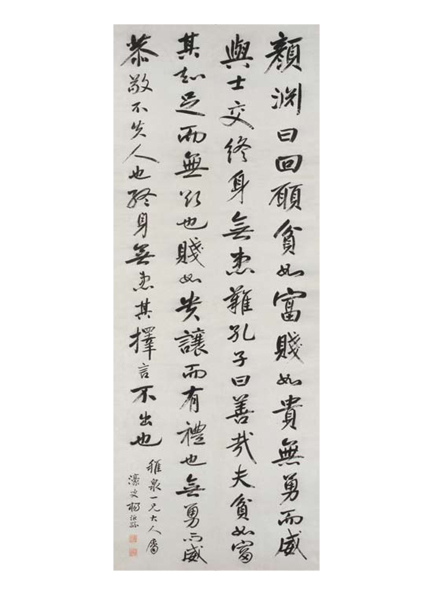 顏淵曰回願貧如富賤如貴無勇而威
與士交終身無患難孔子曰善哉夫貧如富
其知足而無欲也賤如貴讓而有禮也無勇而威
恭敬不失人也終身無患其擇言不出也
泉一兄大人屬
濠叟楊沂孫